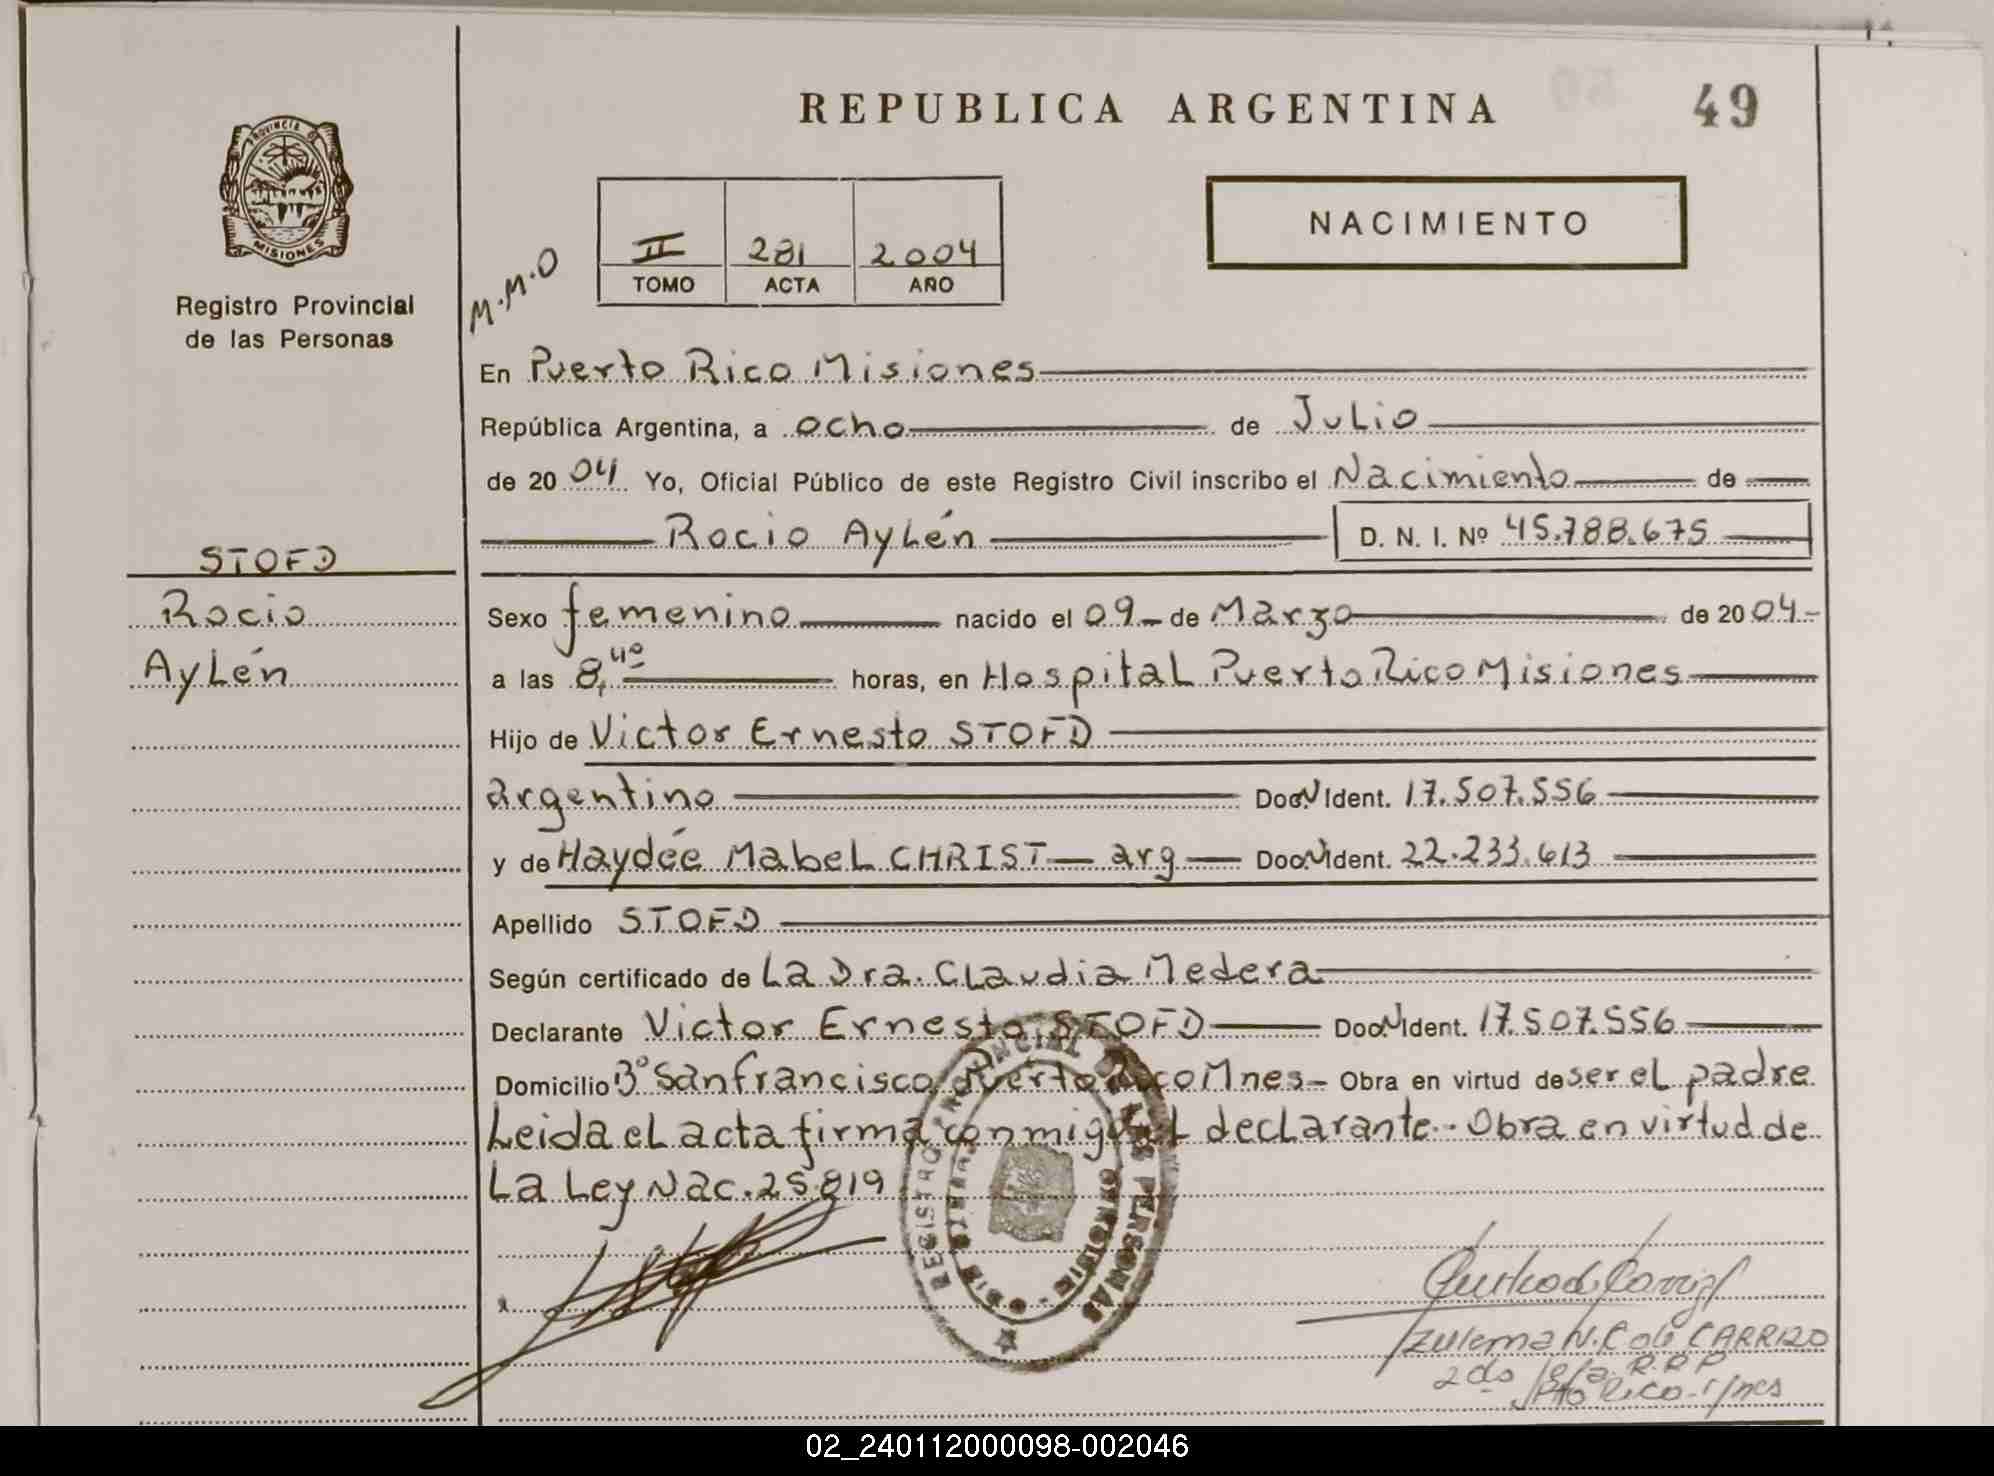 REPUBLICA ARGENTINA
49
PROVINCIA D
MISIONES
Registro Provincial
de las Personas
NACIMIENTO
II 281 2004
TOMO ACTA AÑO
M.M.O
En Puerto Rico Misiones
República Argentina, a ocho de Julio
de 2004 Yo, Oficial Público de este Registro Civil inscribo el Nacimiento de
Rocio Aylén D. N. I. Nº 45.788.675
STOFD
Rocio
Aylén
Sexo femenino nacido el 09 de Marzo de 2004
a las 8,40 horas, en Hospital Puerto Rico Misiones
Hijo de Victor Ernesto STOFD
argentino Doc. N Ident. 17.507.556
y de Haydée Mabel CHRIST arg Doc. N Ident. 22.233.613
Apellido STOFD
Según certificado de La Dra. Claudia Medera
Declarante Victor Ernesto STOFD Doc. N Ident. 17.507.556
Domicilio Bº San francisco Puerto Rico Mnes - Obra en virtud de ser el padre
Leida el acta firma conmigo el declarante.- Obra en virtud de
La Ley Nac. 25.819
REGISTRO PROVINCIAL DE LAS PERSONAS
Zulema N. C de CARRIZO
2da Jefa. R.R.P
Pto Rico - Mnes
02_240112000098-002046